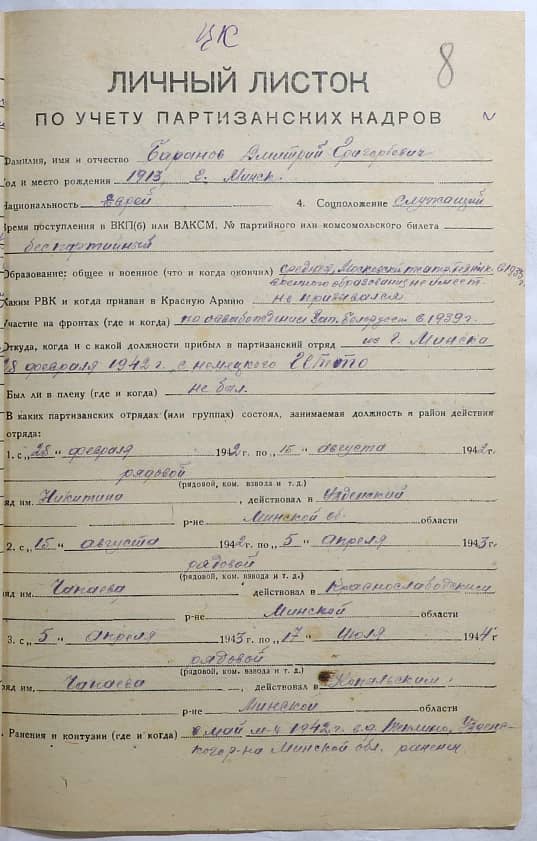 ЦК
8
ЛИЧНЫЙ ЛИСТОК
ПО УЧЕТУ ПАРТИЗАНСКИХ КАДРОВ
Фамилия, имя и отчество Баранов Дмитрий Григорьевич
од и место рождения 1913, г. Минск.
Национальность Еврей 4. Соцположение служащий
Время поступления в ВКП(б) или ВЛКСМ, № партийного или комсомольского билета
беспартийный
Образование: общее и военное (что и когда окончил) средная, Московский в 193
военного образования не имеет
Каким РВК и когда призван в Красную Армию не призывался
Участие на фронтах (где и когда) по освобождении Зап. Белоруссии в 1939 г.
Откуда, когда и с какой должности прибыл в партизанский отряд из г. Минска
28 февраля 1942 г. с немецкого Гетто
Был ли в плену (где и когда) не был.
В каких партизанских отрядах (или группах) состоял, занимаемая должность и район действия
отряда:
1. с „28 " февраля 1942 г. по „15 " августа 1942 г.
рядовой
(рядовой, ком. взвода и т. д.)
яд им. Никитина , действовал в Узденский
р-не Минской об. области
2. с „15 " августа 1942 г. по „5 " апреля 1943 г.
рядовой
(рядовой, ком. взвода и т. д.)
яд им. Чапаева действовал в
р-не Минской области
3. с „5 " апреля 1943 г. по „17 " июля 1944 г
рядовой
(рядовой, ком. взвода и т. д.)
ряд им. Чапаева , действовал в Копыльским
р-не Минской области
Ранения и контузии (где и когда) в май м-ц 1942 г. в д. Узденс-
кого р-на Минской обл. ранения